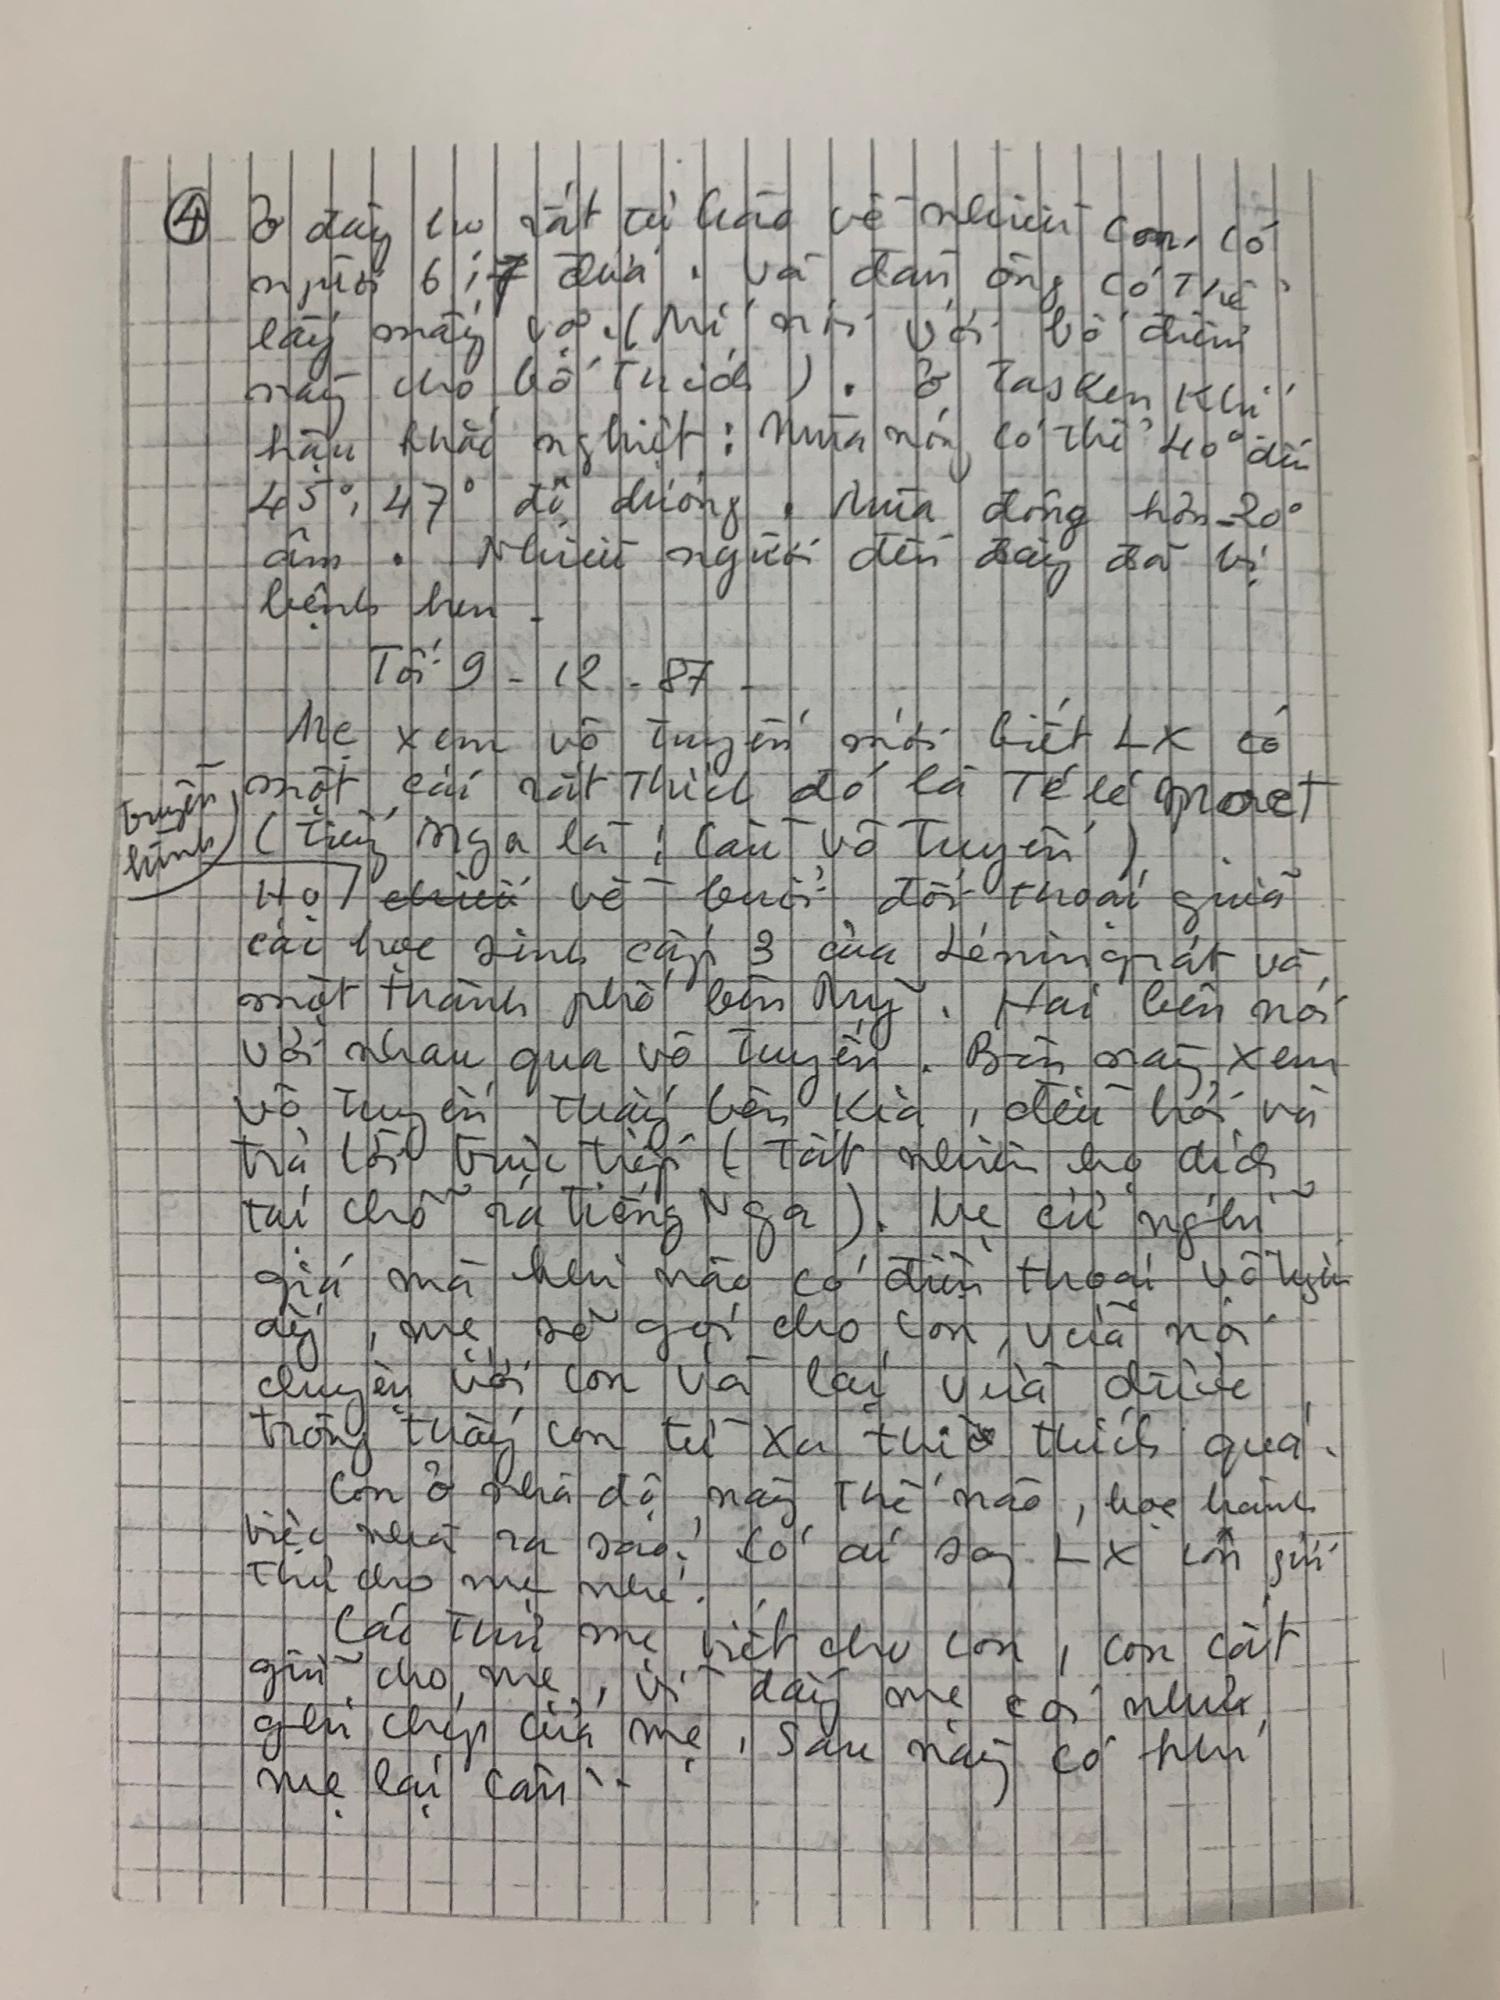 ④ Ở đây họ rất tự hào về nhiều con, có
người 6, 7 đứa. Và đàn ông có thể
lấy mấy vợ. (Mẹ nói với bố điều
này cho bố thích). Ở Tasken khí
hậu khắc nghiệt: Mùa nóng có thể 40° đến
45°, 47° độ dương. Mùa đông hơn -20°
âm. Nhiều người đến đây đã bị
bệnh hen.
Tối 9-12-87
Mẹ xem vô tuyến mới biết LX có
một cái rất thích đó là Télé moct
(tiếng Nga là: Cầu vô tuyến)
truyền hình
Họ chiếu về buổi đối thoại giữa
các học sinh cấp 3 của Lêningrát và
một thành phố bên Mỹ. Hai bên nói
với nhau qua vô tuyến. Bên này xem
vô tuyến thấy bên kia, đều hỏi và
trả lời trực tiếp (Tất nhiên họ dịch
tại chỗ ra tiếng Nga). Mẹ cứ nghĩ
giá mà khi nào có điện thoại vô tuyến
ấy, mẹ sẽ gọi cho con, vừa nói
chuyện với con và lại vừa được
trông thấy con từ xa thì thích quá.
Con ở nhà độ này thế nào, học hành
việc nhà ra sao? Có ai sang LX con gửi
thư cho mẹ nhé.
Các thư mẹ viết cho con, con cất
giữ cho mẹ, vì đây mẹ coi như
ghi chép của mẹ, sau này có khi
mẹ lại cần.